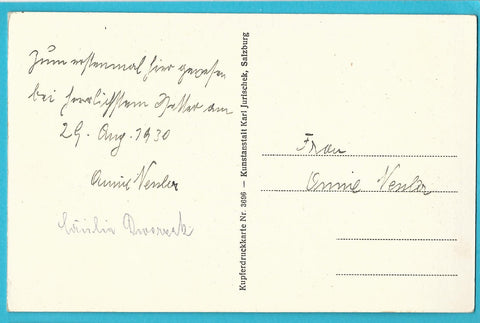 Zum erstenmal hier gewesen
bei herrlichstem Wetter am
29. Aug. 1930
Annie
Cäcilia Dworzak
Kupferdruckkarte Nr. 3696 — Kunstanstalt Karl Jurischek, Salzburg
Frau
Annie